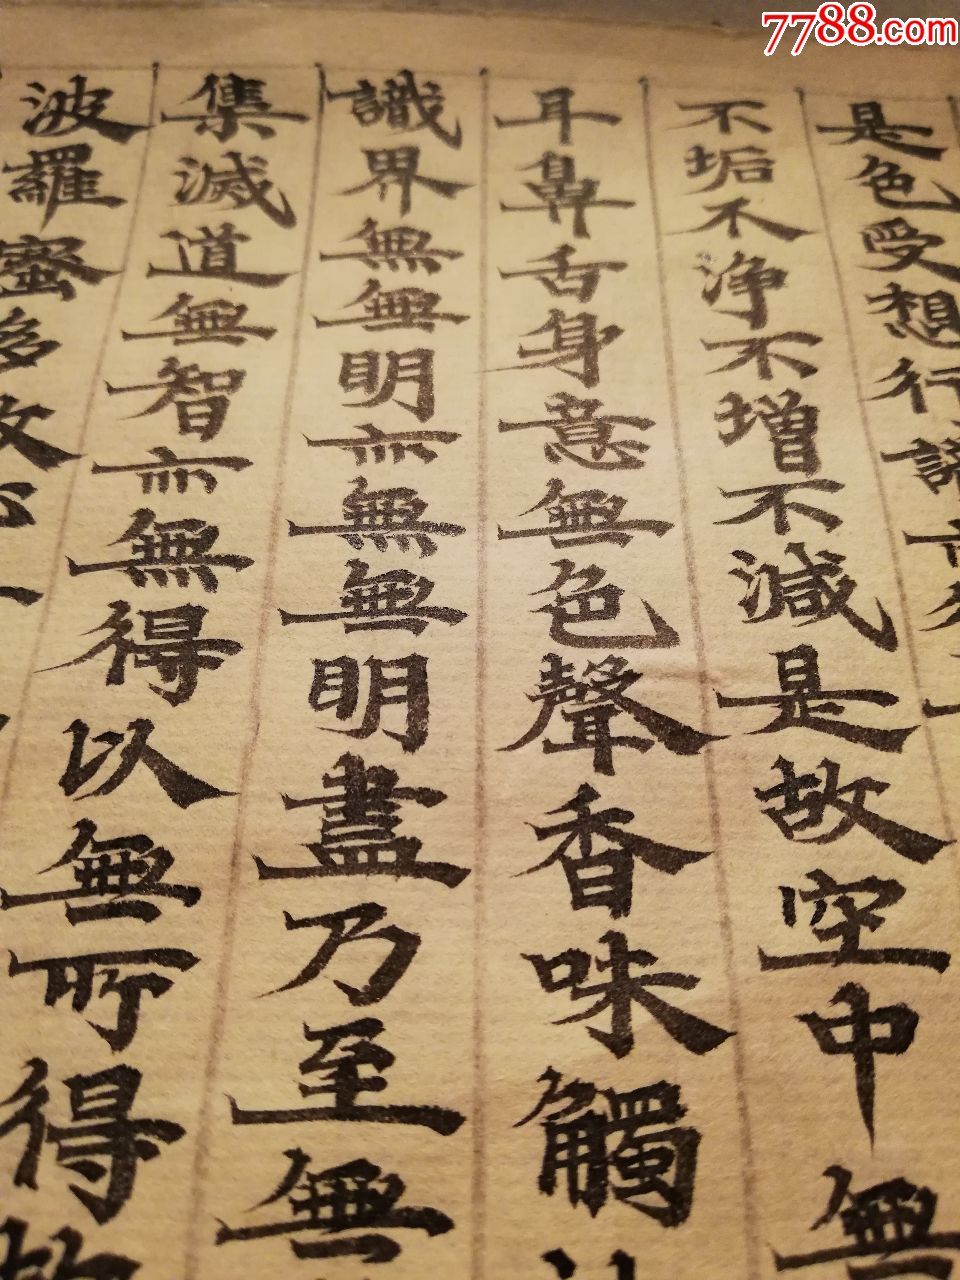 7788.com
是色受想行識亦
不垢不净不增不減是故空中無
耳鼻舌身意無色聲香味觸
識界無無明亦無無明盡乃至無
集滅道無智亦無得以無所得故
波羅蜜多故心